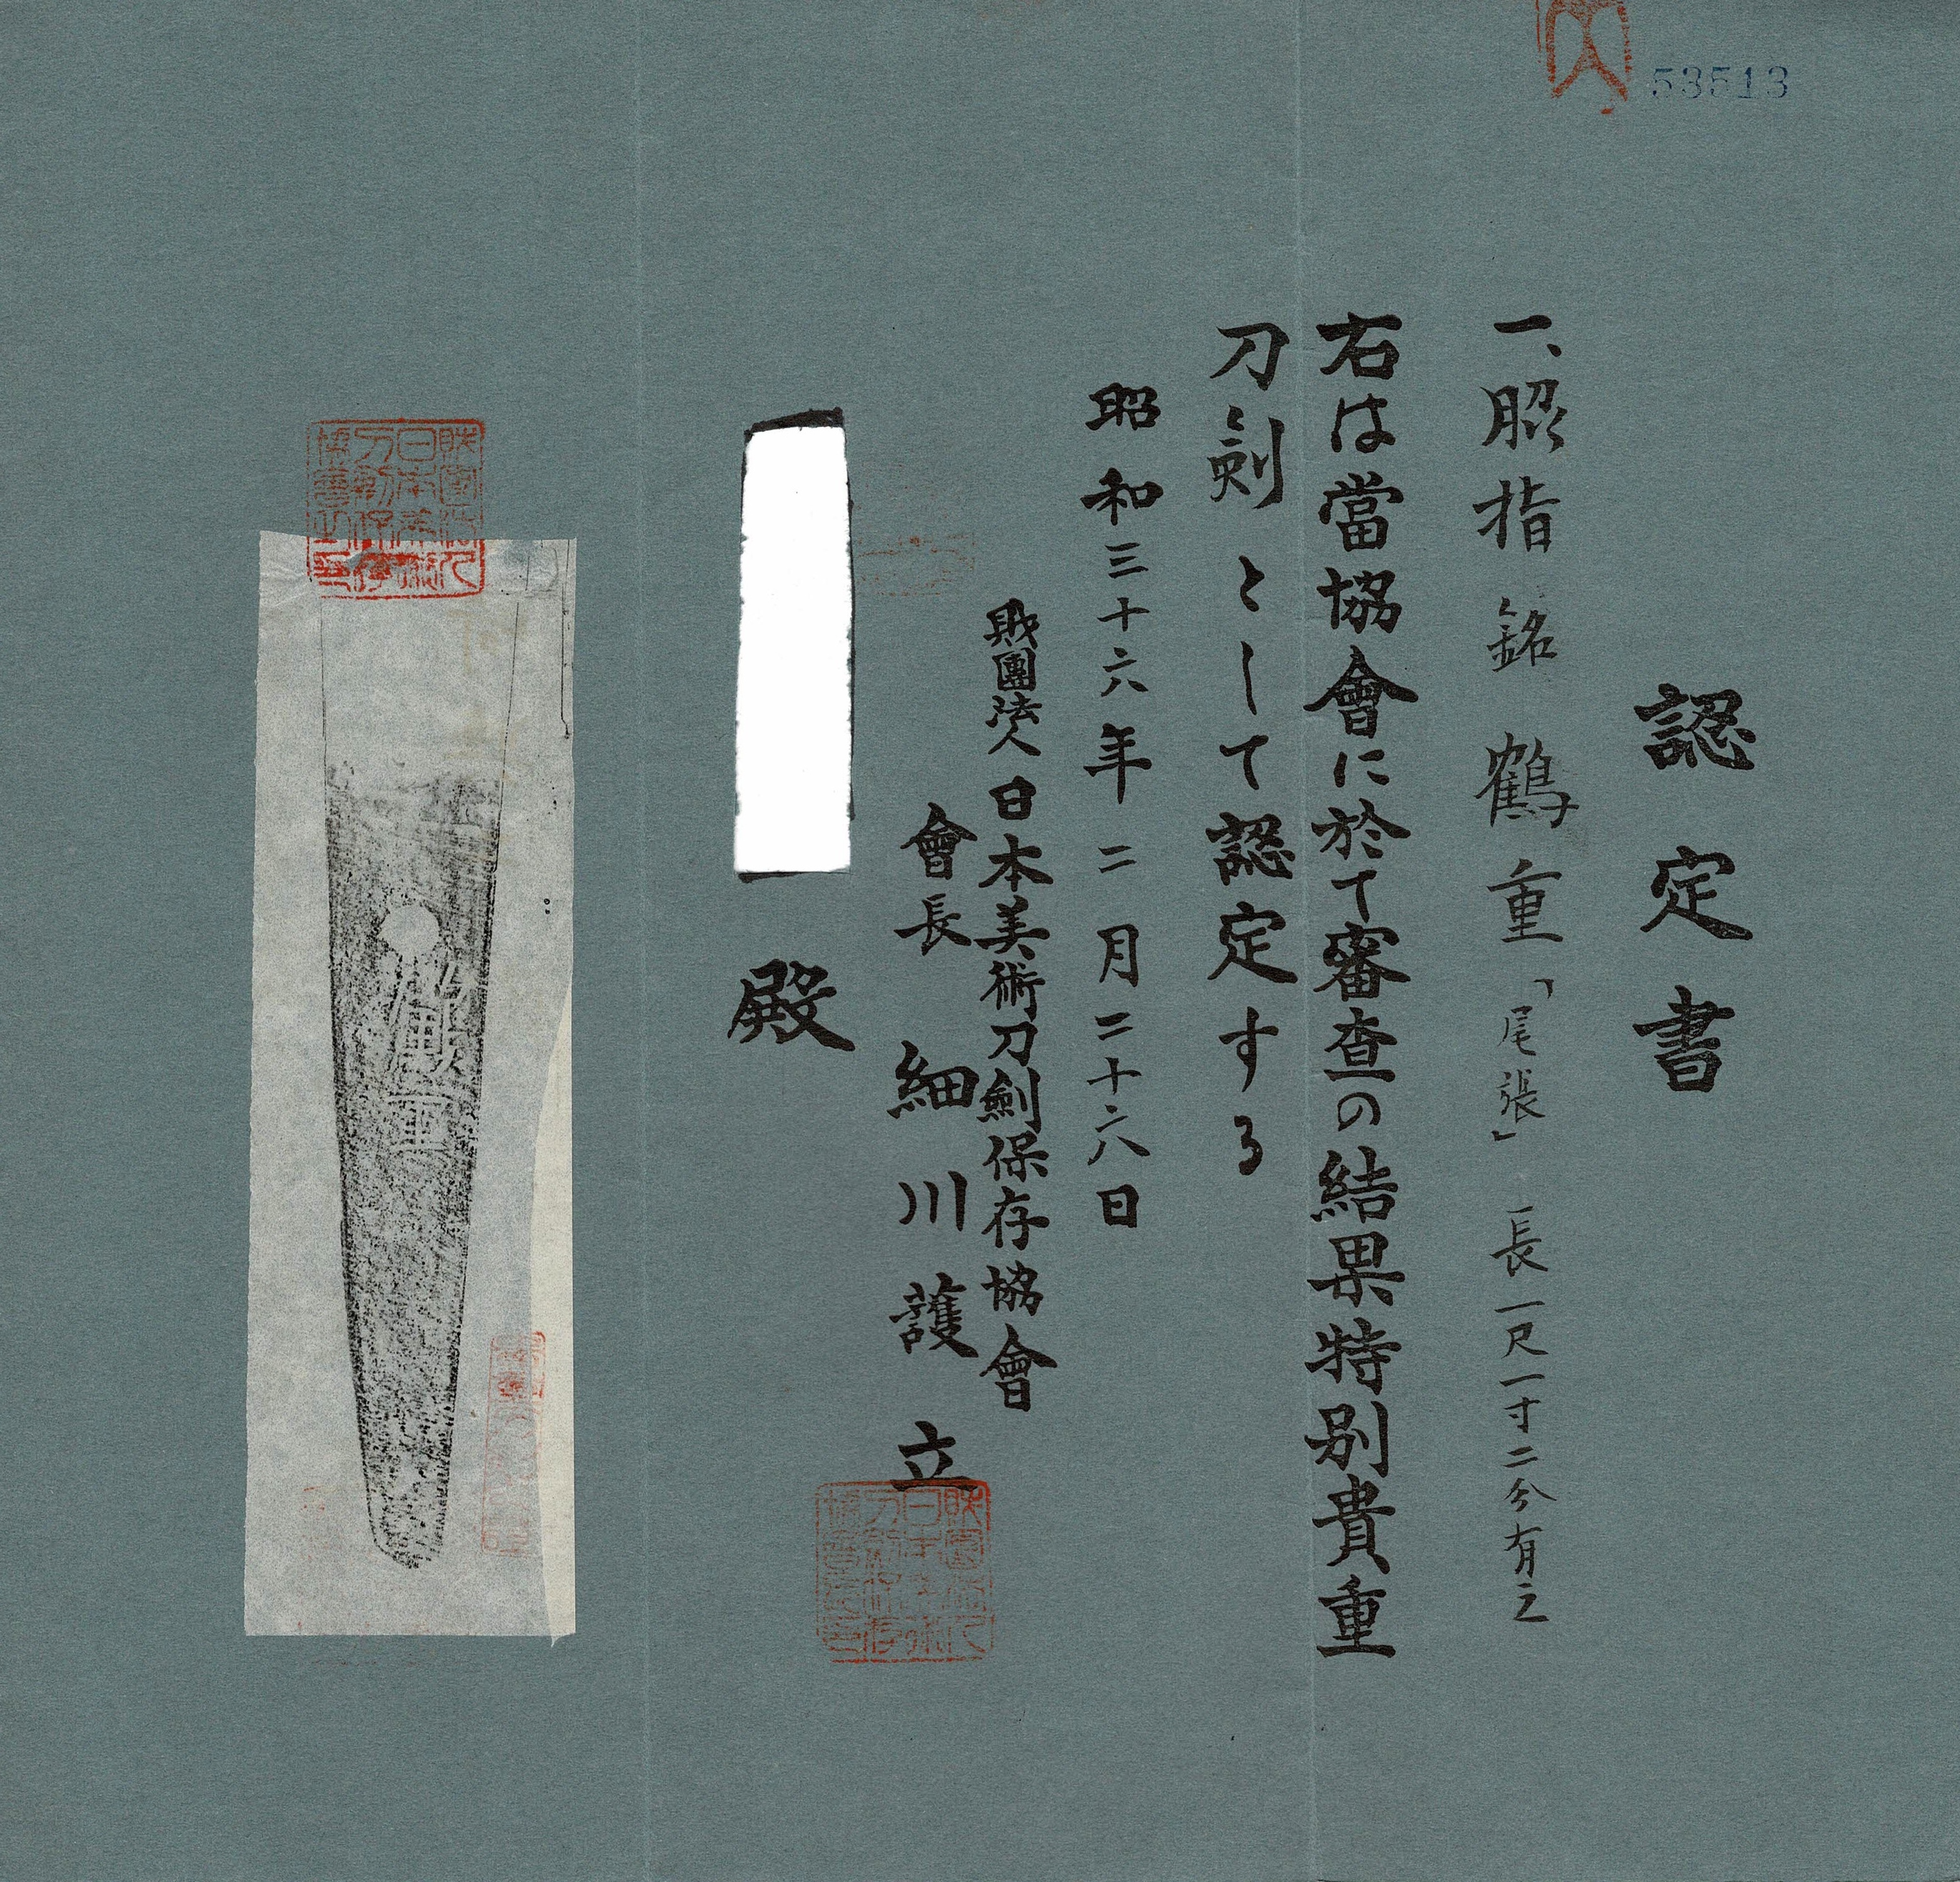 53513
認定書
一、脇指 銘 鶴重「尾張」長一尺一寸二分有之
右は當協會に於て審査の結果特別貴重
刀劍として認定する
昭和三十六年二月二十六日
財團法人日本美術刀劍保存協會
會長 細川護立
殿
財團法人日本美術刀劍保存協會之印